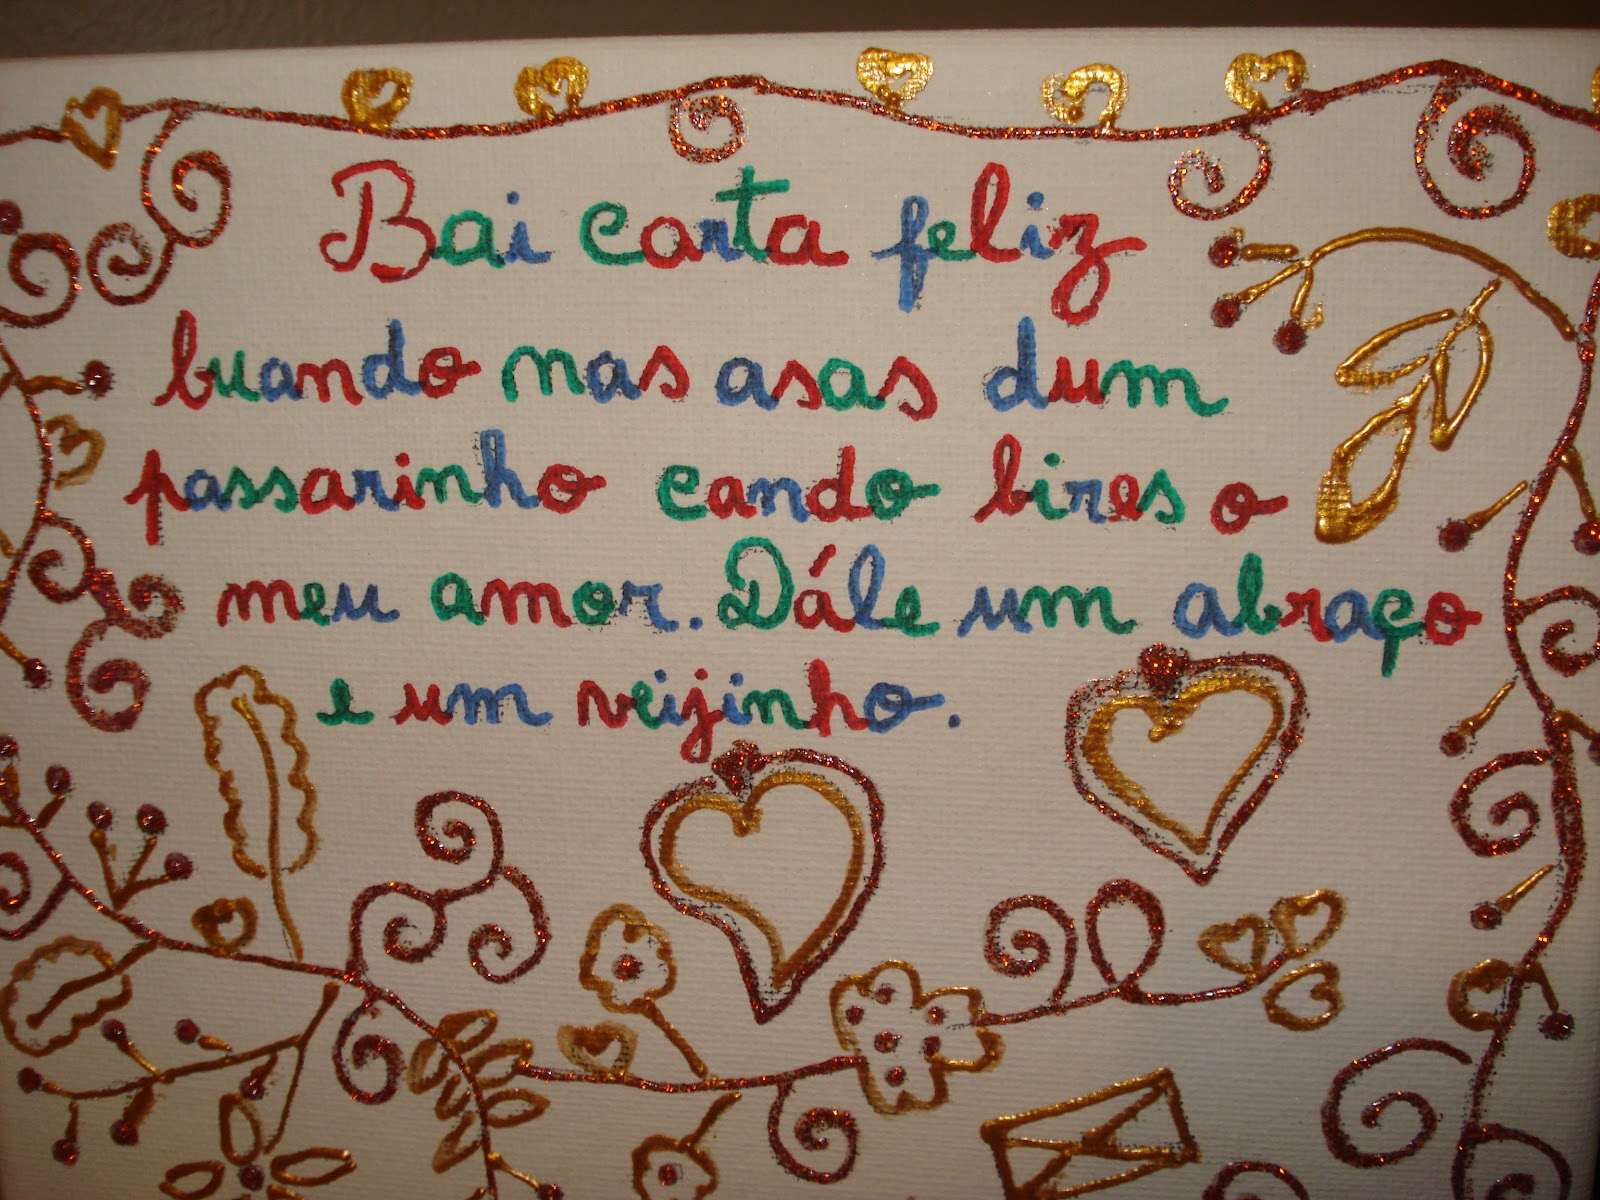 Bai carta feliz
buando nas asas dum
passarinho cando bires o
meu amor. Dále um abraço
e um veijinho.